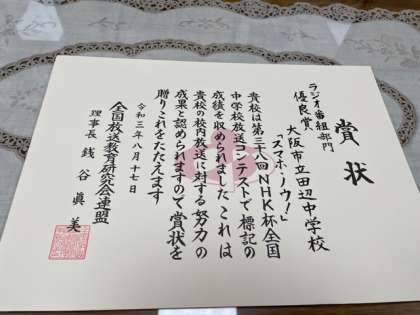 賞状
ラジオ番組部門
優良賞 「スマホ・ノウ!」
大阪市立田辺中学校
貴校は第三十八回NHK杯全国
中学校放送コンテストで標記の
成績を収められましたこれは
貴校の校内放送に対する努力の
成果と認められますので賞状を
贈りこれをたたえます
令和三年八月十七日
全国放送教育研究会連盟
理事長 銭谷眞美